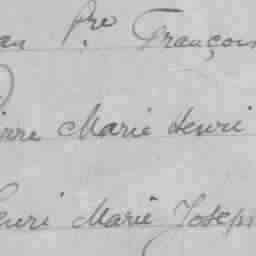 an Pre François
ierre Marie Henri
enri Marie Joseph